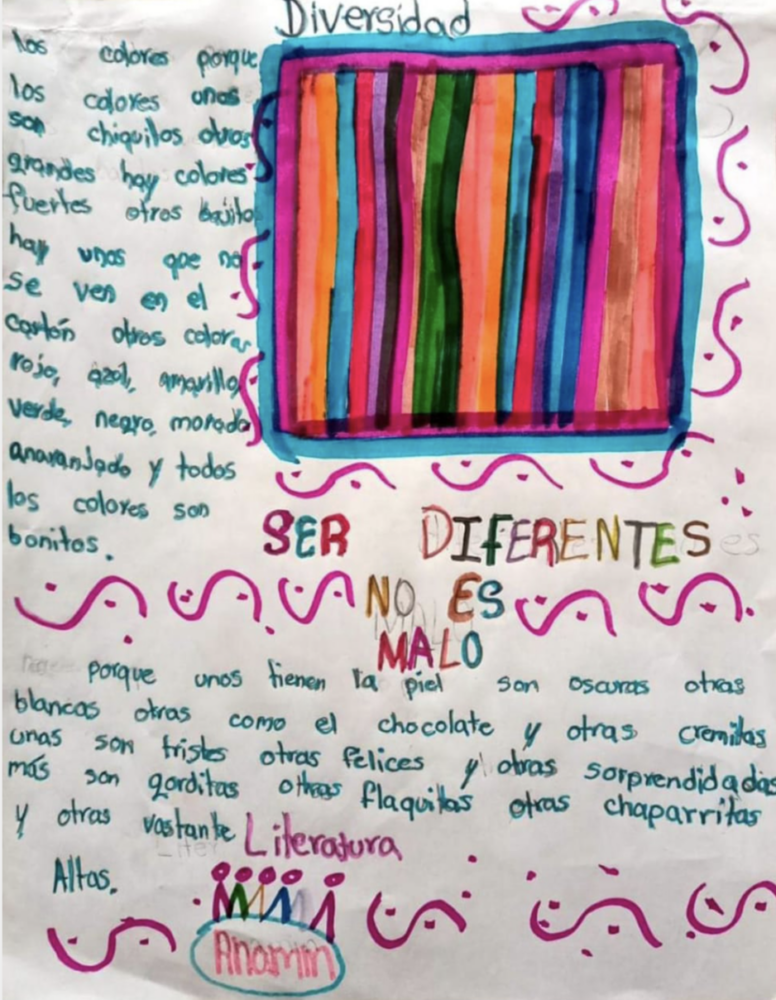 Diversidad
los colores porque
los colores unos
son chiquilos otros
grandes hay colores
fuertes otros bajito
hay unos que no
se ven en el
cartón otros colores
rojo, azul, amarillo,
verde, negro, morado
anaranJado y todos
los colores son
bonitos.
SER DIFERENTES
NO ES
MALO
porque unos tienen la piel son oscuras otras
blancas otras como el chocolate y otras cremitas
unas son tristes otras felices y otras sorprendidadas
más son gorditas otras flaquitas otras chaparritas
y otras vastante
Altas.
Literatura
Anamin